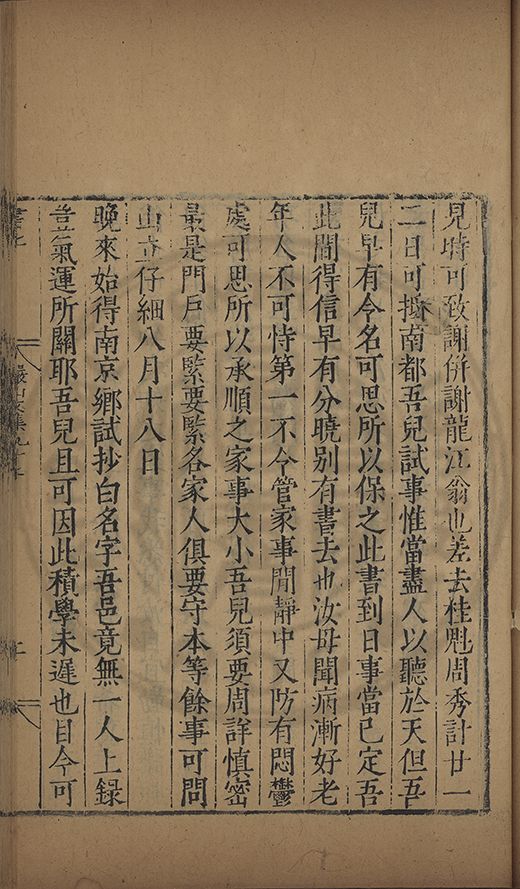 見時可致謝併謝龍江翁也差去桂魁周秀計廿一
二日可抵南都吾兒試事惟當盡人以聽於天但吾
兒早有今名可思所以保之此書到日事當已定吾
此間得信早有分曉别有書去也汝母聞病漸好老
年人不可恃第一不令管家事閒靜中又防有悶鬱
處可思所以承順之家事大小吾兒須要周詳慎密
最是門戸要緊要緊各家人俱要守本等餘事可問
山立仔細八月十八日
晚來始得南京鄉試抄白名字吾邑竟無一人上錄
豈氣運所關耶吾兒且可因此積學未遲也目今可